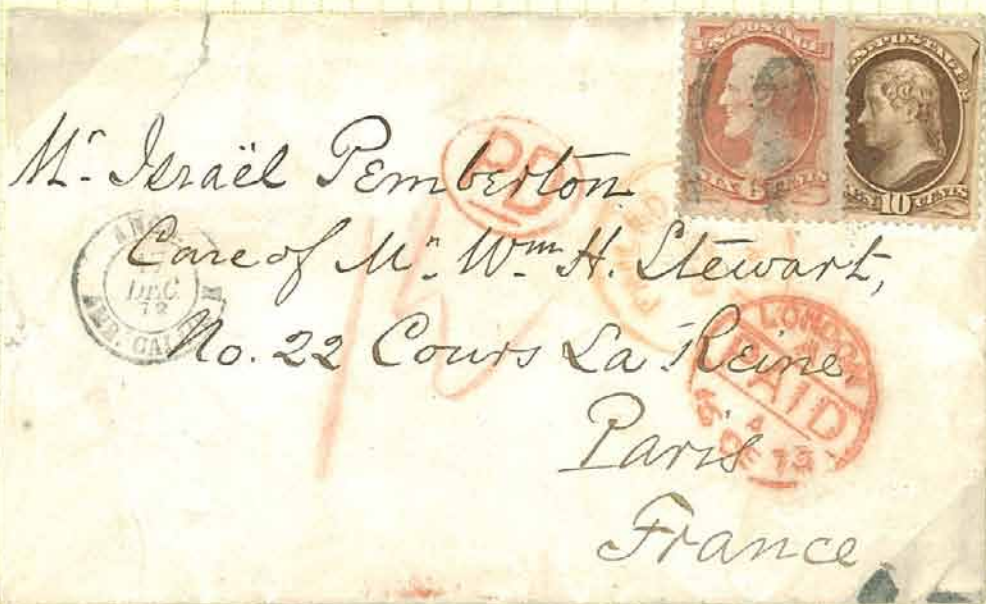 U.S. POSTAGE
SIX 6 CENTS
U.S. POSTAGE
TEN 10 CENTS
Mr. Israël Pemberton.
PD
Care of Mr. Wm. H. Stewart,
DEC.
72
AMB. CAL.
No. 22 Cours La Reine
LONDON
PAID
Paris
France